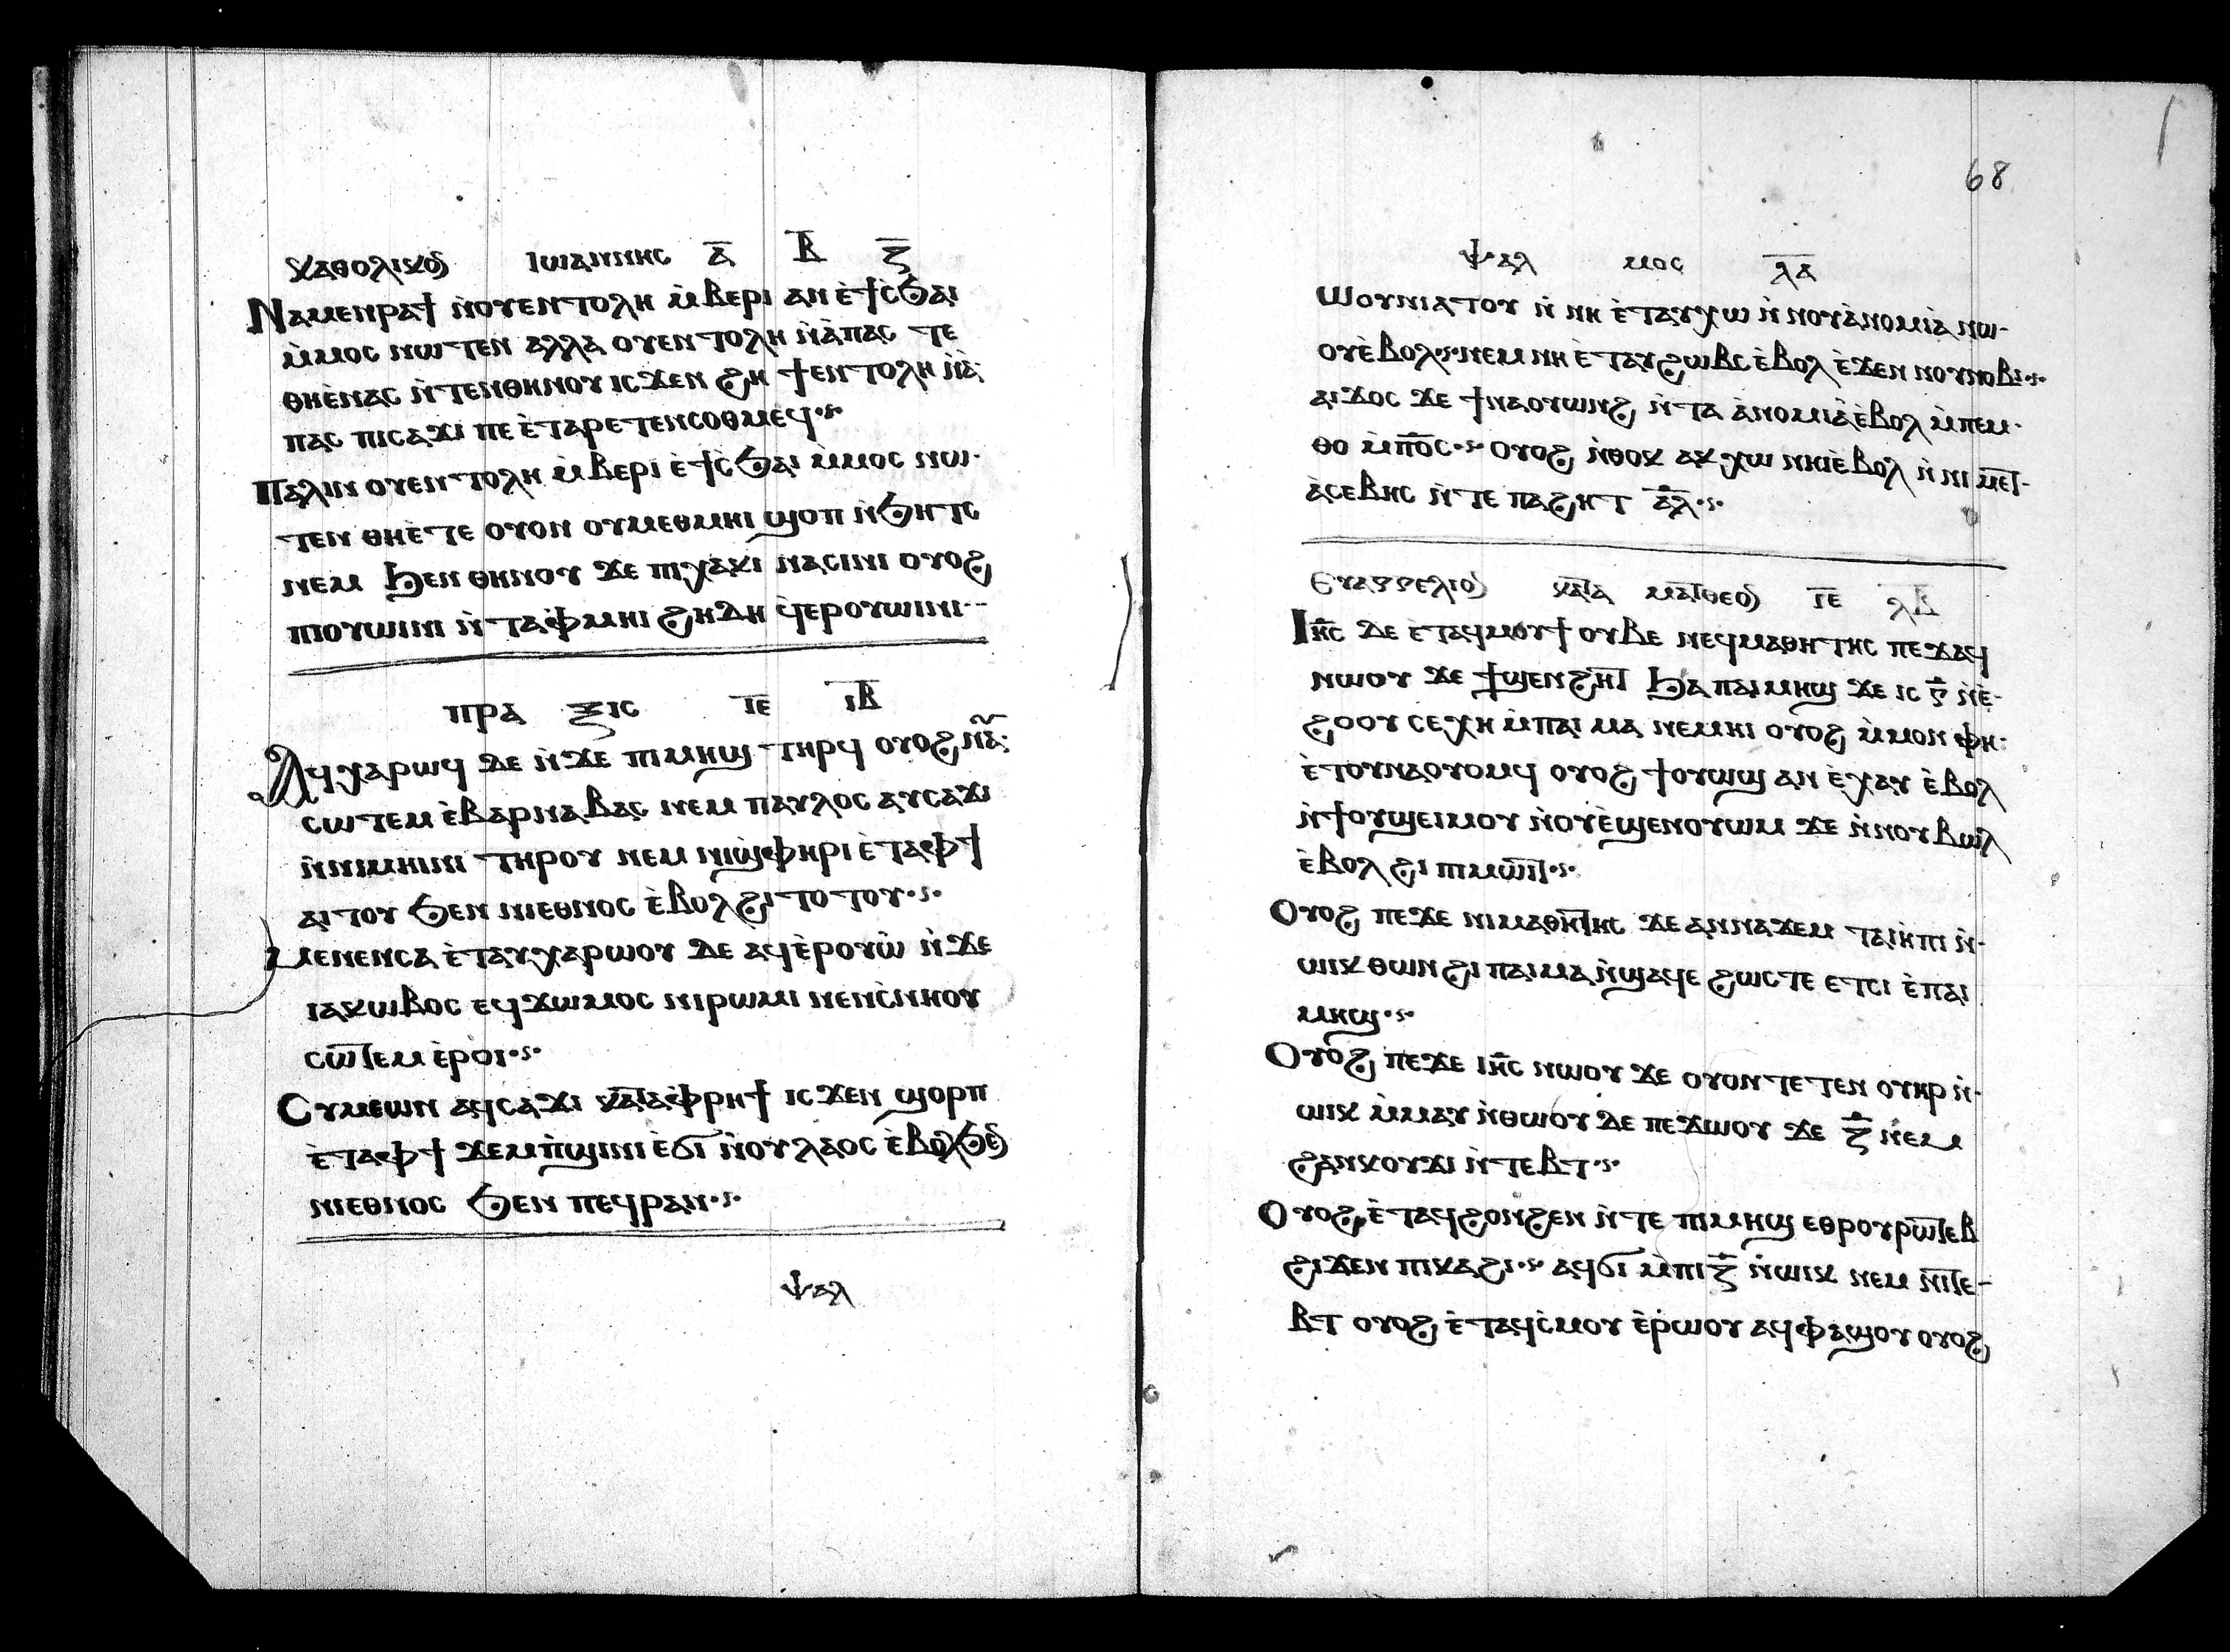 ⲕⲁⲑⲟⲗⲓⲕⲟⲛ ⲓⲱⲁⲛⲛⲏⲥ ⲁ̅ ⲃ̅ ⲍ̅
Ⲛⲁⲙⲉⲛⲣⲁϯ ⲛ̀ⲟⲩⲉⲛⲧⲟⲗⲏ ⲙ̀ⲃⲉⲣⲓ ⲁⲛ ⲉ̀ϯⲥ̀ϧⲁⲓ
ⲙ̀ⲙⲟⲥ ⲛⲱⲧⲉⲛ ⲁⲗⲗⲁ ⲟⲩⲉⲛⲧⲟⲗⲏ ⲛ̀ⲁ̀ⲡⲁⲥ ⲧⲉ
ⲑⲏⲉ̀ⲛⲁⲥ ⲛ̀ⲧⲉⲛⲑⲏⲛⲟⲩ ⲓⲥϫⲉⲛ ϩⲏ ϯⲉⲛⲧⲟⲗⲏ ⲛ̀ⲁ̀
ⲡⲁⲥ ⲡⲓⲥⲁϫⲓ ⲡⲉ ⲉ̀ⲧⲁⲣⲉⲧⲉⲛⲥⲟⲑⲙⲉϥ·ⲋ·
Ⲡⲁⲗⲓⲛ ⲟⲩⲉⲛⲧⲟⲗⲏ ⲙ̀ⲃⲉⲣⲓ ⲉ̀ϯⲥ̀ϧⲁⲓ ⲙ̀ⲙⲟⲥ ⲛⲱ·
ⲧⲉⲛ ⲑⲏⲉ̀ⲧⲉ ⲟⲩⲟⲛ ⲟⲩⲙⲉⲑⲙⲏⲓ ϣⲟⲡ ⲛ̀ϧⲏⲧⲥ
ⲛⲉⲙ ϧⲉⲛ ⲑⲏⲛⲟⲩ ϫⲉ ⲡⲓⲭⲁⲕⲓ ⲛⲁⲥⲓⲛⲓ ⲟⲩⲟϩ
ⲡⲓⲟⲩⲱⲓⲛⲓ ⲛ̀ⲧⲁⲫⲙⲏⲓ ϩⲏⲇⲏ ϥⲉⲣⲟⲩⲱⲓⲛⲓ··
ⲡⲣⲁ ⲝⲓⲥ ⲓⲉ̅ ⲓⲃ̅
Ⲁϥⲭⲁⲣⲱϥ ⲇⲉ ⲛ̀ϫⲉ ⲡⲓⲙⲏϣ ⲧⲏⲣϥ ⲟⲩⲟϩ ⲛⲁⲩ
ⲥⲱⲧⲉⲙ ⲉ̀ⲃⲁⲣⲛⲁⲃⲁⲥ ⲛⲉⲙ ⲡⲁⲩⲗⲟⲥ ⲁⲩⲥⲁϫⲓ
ⲛ̀ⲛⲓⲙⲏⲓⲛⲓ ⲧⲏⲣⲟⲩ ⲛⲉⲙ ⲛⲓϣⲫⲏⲣⲓ ⲉ̀ⲧⲁⲫϯ
ⲁⲓⲧⲟⲩ ϧⲉⲛ ⲛⲓⲉⲑⲛⲟⲥ ⲉ̀ⲃⲟⲗ ϩⲓⲧⲟⲧⲟⲩ·ⲋ·
Ⲙⲉⲛⲉⲛⲥⲁ ⲉ̀ⲧⲁⲩⲭⲁⲣⲱⲟⲩ ⲇⲉ ⲁϥⲉ̀ⲣⲟⲩⲱ̀ ⲛ̀ϫⲉ
ⲓⲁⲕⲱⲃⲟⲥ ⲉϥϫⲱⲙⲟⲥ ⲛⲓⲣⲱⲙⲓ ⲛⲉⲛⲥ̀ⲛⲏⲟⲩ
ⲥⲱⲧⲉⲙ ⲉ̀ⲣⲟⲓ·ⲋ·
Ⲥⲩⲙⲉⲱⲛ ⲁϥⲥⲁϫⲓ ⲕⲁⲧⲁⲫⲣⲏϯ ⲓⲥϫⲉⲛ ϣⲟⲣⲡ
ⲉ̀ⲧⲁⲫϯ ϫⲉⲙⲡ̀ϣⲓⲛⲓ ⲉ̀ϭⲓ ⲛ̀ⲟⲩⲗⲁⲟⲥ ⲉ̀ⲃⲟⲗϧⲉⲛ
ⲛⲓⲉⲑⲛⲟⲥ ϧⲉⲛ ⲡⲉϥⲣⲁⲛ·ⲋ·
ⲯⲁⲗ
68
ⲯⲁⲗ ⲙⲟⲥ ⲗⲁ̅
Ⲱⲟⲩⲛⲓⲁⲧⲟⲩ ⲛ̀ ⲛⲏ ⲉ̀ⲧⲁⲩⲭⲱ ⲛ̀ ⲛⲟⲩⲁ̀ⲛⲟⲙⲓⲁ̀ ⲛⲱ·
ⲟⲩⲉ̀ⲃⲟⲗ·ⲋ·ⲛⲉⲙ ⲛⲏ ⲉ̀ⲧⲁⲩϩⲱⲃⲥ ⲉ̀ⲃⲟⲗ ⲉ̀ϫⲉⲛ ⲛⲟⲩⲛⲟⲃⲓ·ⲋ·
ⲁⲓϫⲟⲥ ϫⲉ ϯⲛⲁⲟⲩⲱⲛϩ ⲛ̀ⲧⲁ ⲁ̀ⲛⲟⲙⲓⲁ̀ ⲉ̀ⲃⲟⲗ ⲙ̀ⲡⲉⲙ·
ⲑⲟ ⲙ̀ⲡⲟ̅ⲥ·ⲋ· ⲟⲩⲟϩ ⲛ̀ⲑⲟⲕ ⲁⲕⲭⲱ ⲛⲏⲓ ⲉ̀ⲃⲟⲗ ⲛ̀ ⲛⲓ ⲙⲉⲧ·
ⲁ̀ⲥⲉⲃⲏⲥ ⲛ̀ⲧⲉ ⲡⲁϩⲏⲧ ⲁ̅ⲗ̅·ⲋ·
Ⲉⲩⲁⲅⲅⲉⲗⲓⲟⲛ ⲕⲁⲧⲁ ⲙⲁⲧⲑⲉⲟⲛ ⲓⲉ̅ ⲗⲃ̅
Ⲓⲏ̅ⲥ ⲇⲉ ⲉ̀ⲧⲁϥⲙⲟⲩϯ ⲟⲩⲃⲉ ⲛⲉϥⲙⲁⲑⲏⲧⲏⲥ ⲡⲉϫⲁϥ
ⲛⲱⲟⲩ ϫⲉ ϯϣⲉⲛϩⲏⲧ ϧⲁ ⲡⲁⲓⲙⲏϣ ϫⲉ ⲓⲥ ⲅ̅ ⲛ̀ⲉ̀·
ϩⲟⲟⲩ ⲥⲉⲭⲏ ⲙ̀ⲡⲁⲓ ⲙⲁ ⲛⲉⲙⲏⲓ ⲟⲩⲟϩ ⲙ̀ⲙⲟⲛ ⲫⲏ:
ⲉ̀ⲧⲟⲩⲛⲁⲟⲩⲟⲙϥ ⲟⲩⲟϩ ϯⲟⲩⲱϣ ⲁⲛ ⲉ̀ⲭⲁⲩ ⲉ̀ⲃⲟⲗ
ⲛ̀ϯⲟⲩϣⲉⲓⲙⲟⲩ ⲛ̀ⲟⲩⲉ̀ϣⲉⲛⲟⲩⲱⲙ ϫⲉ ⲛ̀ⲛⲟⲩⲃⲱⲗ
ⲉ̀ⲃⲟⲗ ϩⲓ ⲡⲓⲙⲱⲓⲧ·ⲋ·
Ⲟⲩⲟϩ ⲡⲉϫⲉ ⲛⲓⲙⲁⲑⲏⲧⲏⲥ ϫⲉ ⲁⲛⲛⲁϫⲉⲙ ⲧⲁⲓⲏⲡⲓ ⲛ̀·
ⲱⲓⲕ ⲑⲱⲛ ϩⲓ ⲡⲁⲓⲙⲁ ⲛ̀ϣⲁϥⲉ ϩⲱⲥⲧⲉ ⲉⲧⲥⲓ ⲉ̀ⲡⲁⲓ
ⲙⲏϣ·ⲋ·
Ⲟⲩⲟϩ ⲡⲉϫⲉ ⲓⲏ̅ⲥ ⲛⲱⲟⲩ ϫⲉ ⲟⲩⲟⲛⲧⲉⲧⲉⲛ ⲟⲩⲏⲣ ⲛ̀·
ⲱⲓⲕ ⲙ̀ⲙⲁⲩ ⲛ̀ⲑⲱⲟⲩ ⲇⲉ ⲡⲉϫⲱⲟⲩ ϫⲉ ⲍ̅ ⲛⲉⲙ
ϩⲁⲛⲕⲟⲩϫⲓ ⲛ̀ⲧⲉⲃⲧ·ⲋ·
Ⲟⲩⲟϩ ⲉ̀ⲧⲁϥϩⲟⲛϩⲉⲛ ⲛ̀ⲧⲉ ⲡⲓⲙⲏϣ ⲉⲑⲣⲟⲩⲣⲱⲧⲉⲃ
ϩⲓϫⲉⲛ ⲡⲓⲕⲁϩⲓ·ⲋ· ⲁϥϭⲓ ⲙ̀ⲡⲓⲍ̅ ⲛ̀ⲱⲓⲕ ⲛⲉⲙ ⲛⲓⲧⲉ-
ⲃⲧ ⲟⲩⲟϩ ⲉ̀ⲧⲁϥⲥ̀ⲙⲟⲩ ⲉ̀ⲣⲱⲟⲩ ⲁϥⲫⲁϣⲟⲩ ⲟⲩⲟϩ